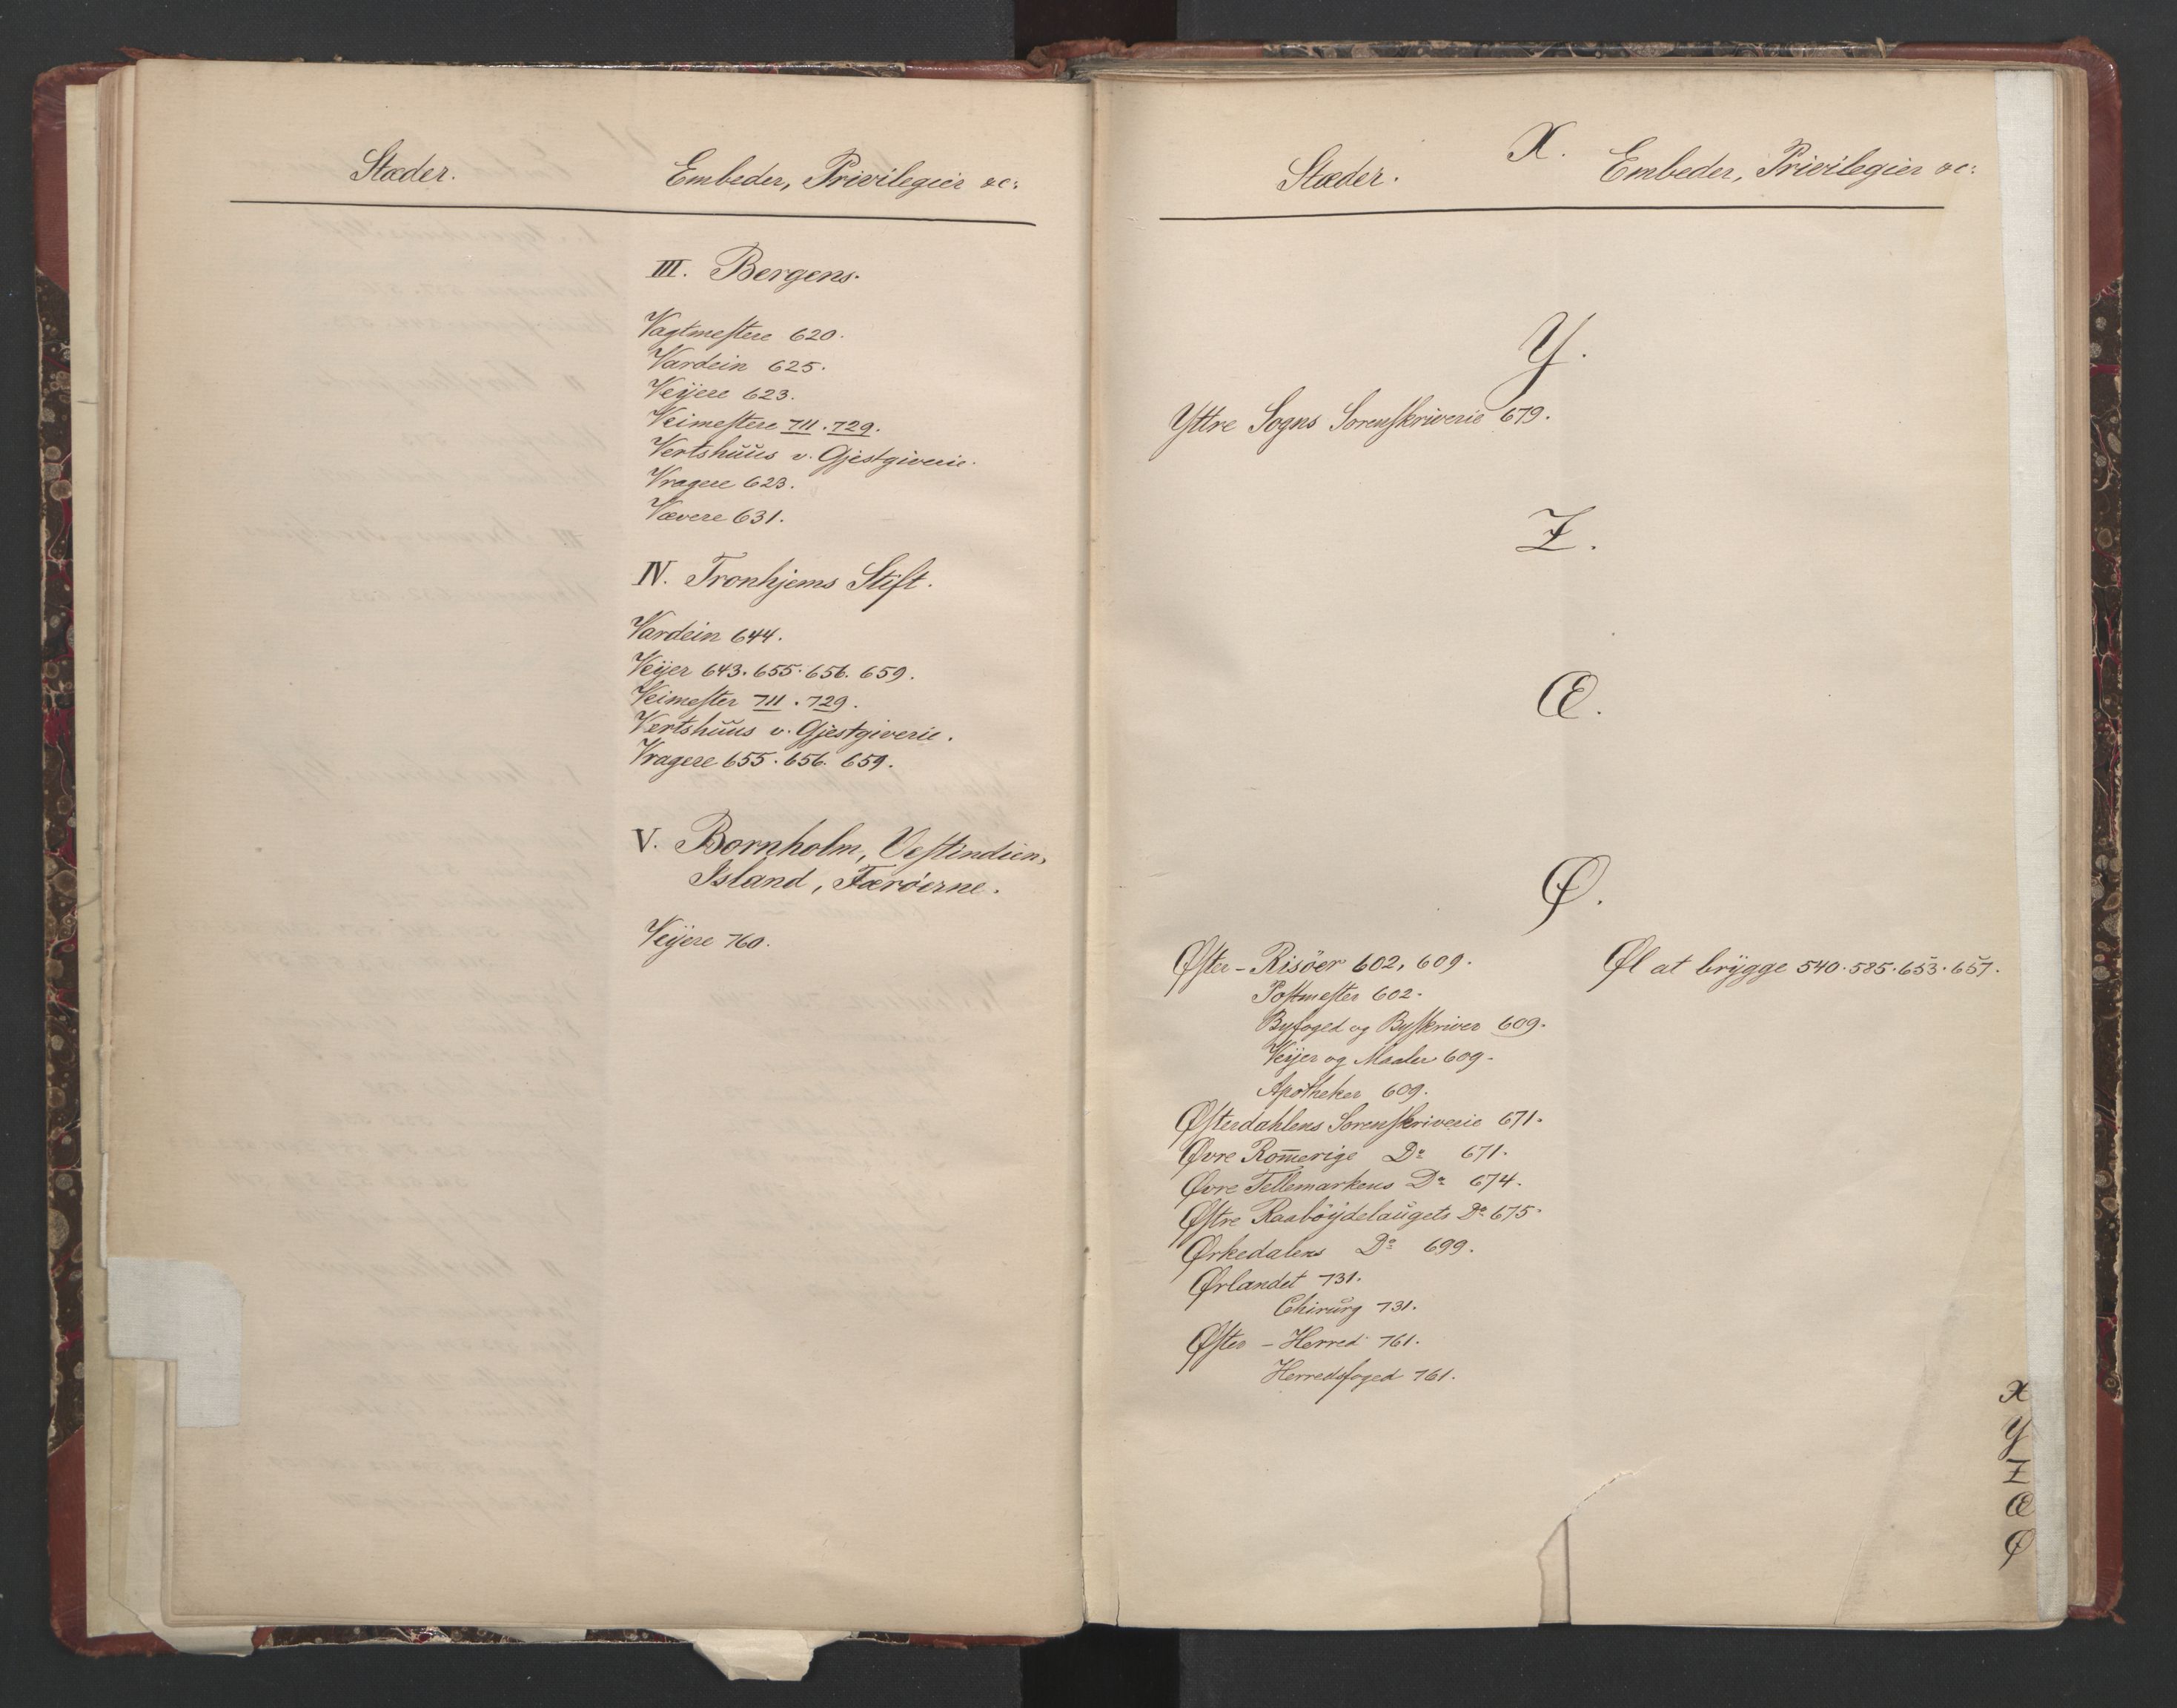 Stæder.
Embeder, Privilegier &c:
III. Bergens.
Vagtmestere 620.
Vardein 625.
Veÿere 623.
Veimestere 711. 729.
Vertshuus v. Gjestgiverie.
Vragere 623.
Vævere 631.
IV. Tronhjems Stift.
Vardein 644.
Veÿer 643. 655. 656. 659.
Veimester 711. 729.
Vertshuus v. Gjestgiverie.
Vragere 655. 656. 659.
V. Bornholm, Vestindien,
Island, Færöerne.
Veÿere 760.
X.
Stæder.
Embeder, Privilegier &c:
Y.
Yttre Sogns Sorenskriverie 679.
Z.
Æ.
Ø.
Øster-Risöer 602, 609.
Postmester 602.
Byfoged og Byskriver 609.
Veÿer og Maaler 609.
Apotheker 609.
Østerdahlens Sorenskriverie 671.
Øvre Rom̄erige Do 671.
Øvre Tellemarkens Do 674.
Østre Raaböÿdelaugets Do 675.
Ørkedalens Do 699.
Ørlandet 731.
Chirurg 731.
Øster-Herred 761.
Herredsfoged 761.
Øl at brÿgge 540. 585. 653. 657.
X
Y
Z
Æ
Ø